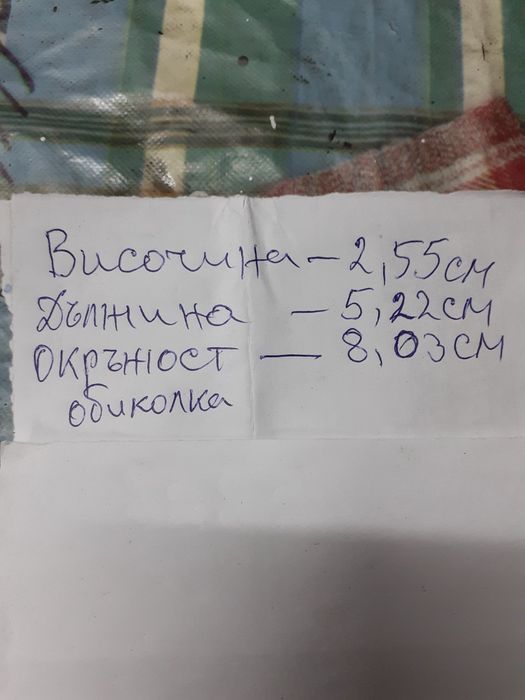 Височина – 2,55 см
Дължина – 5,22 см
окръжост — 8,03 см
обиколка